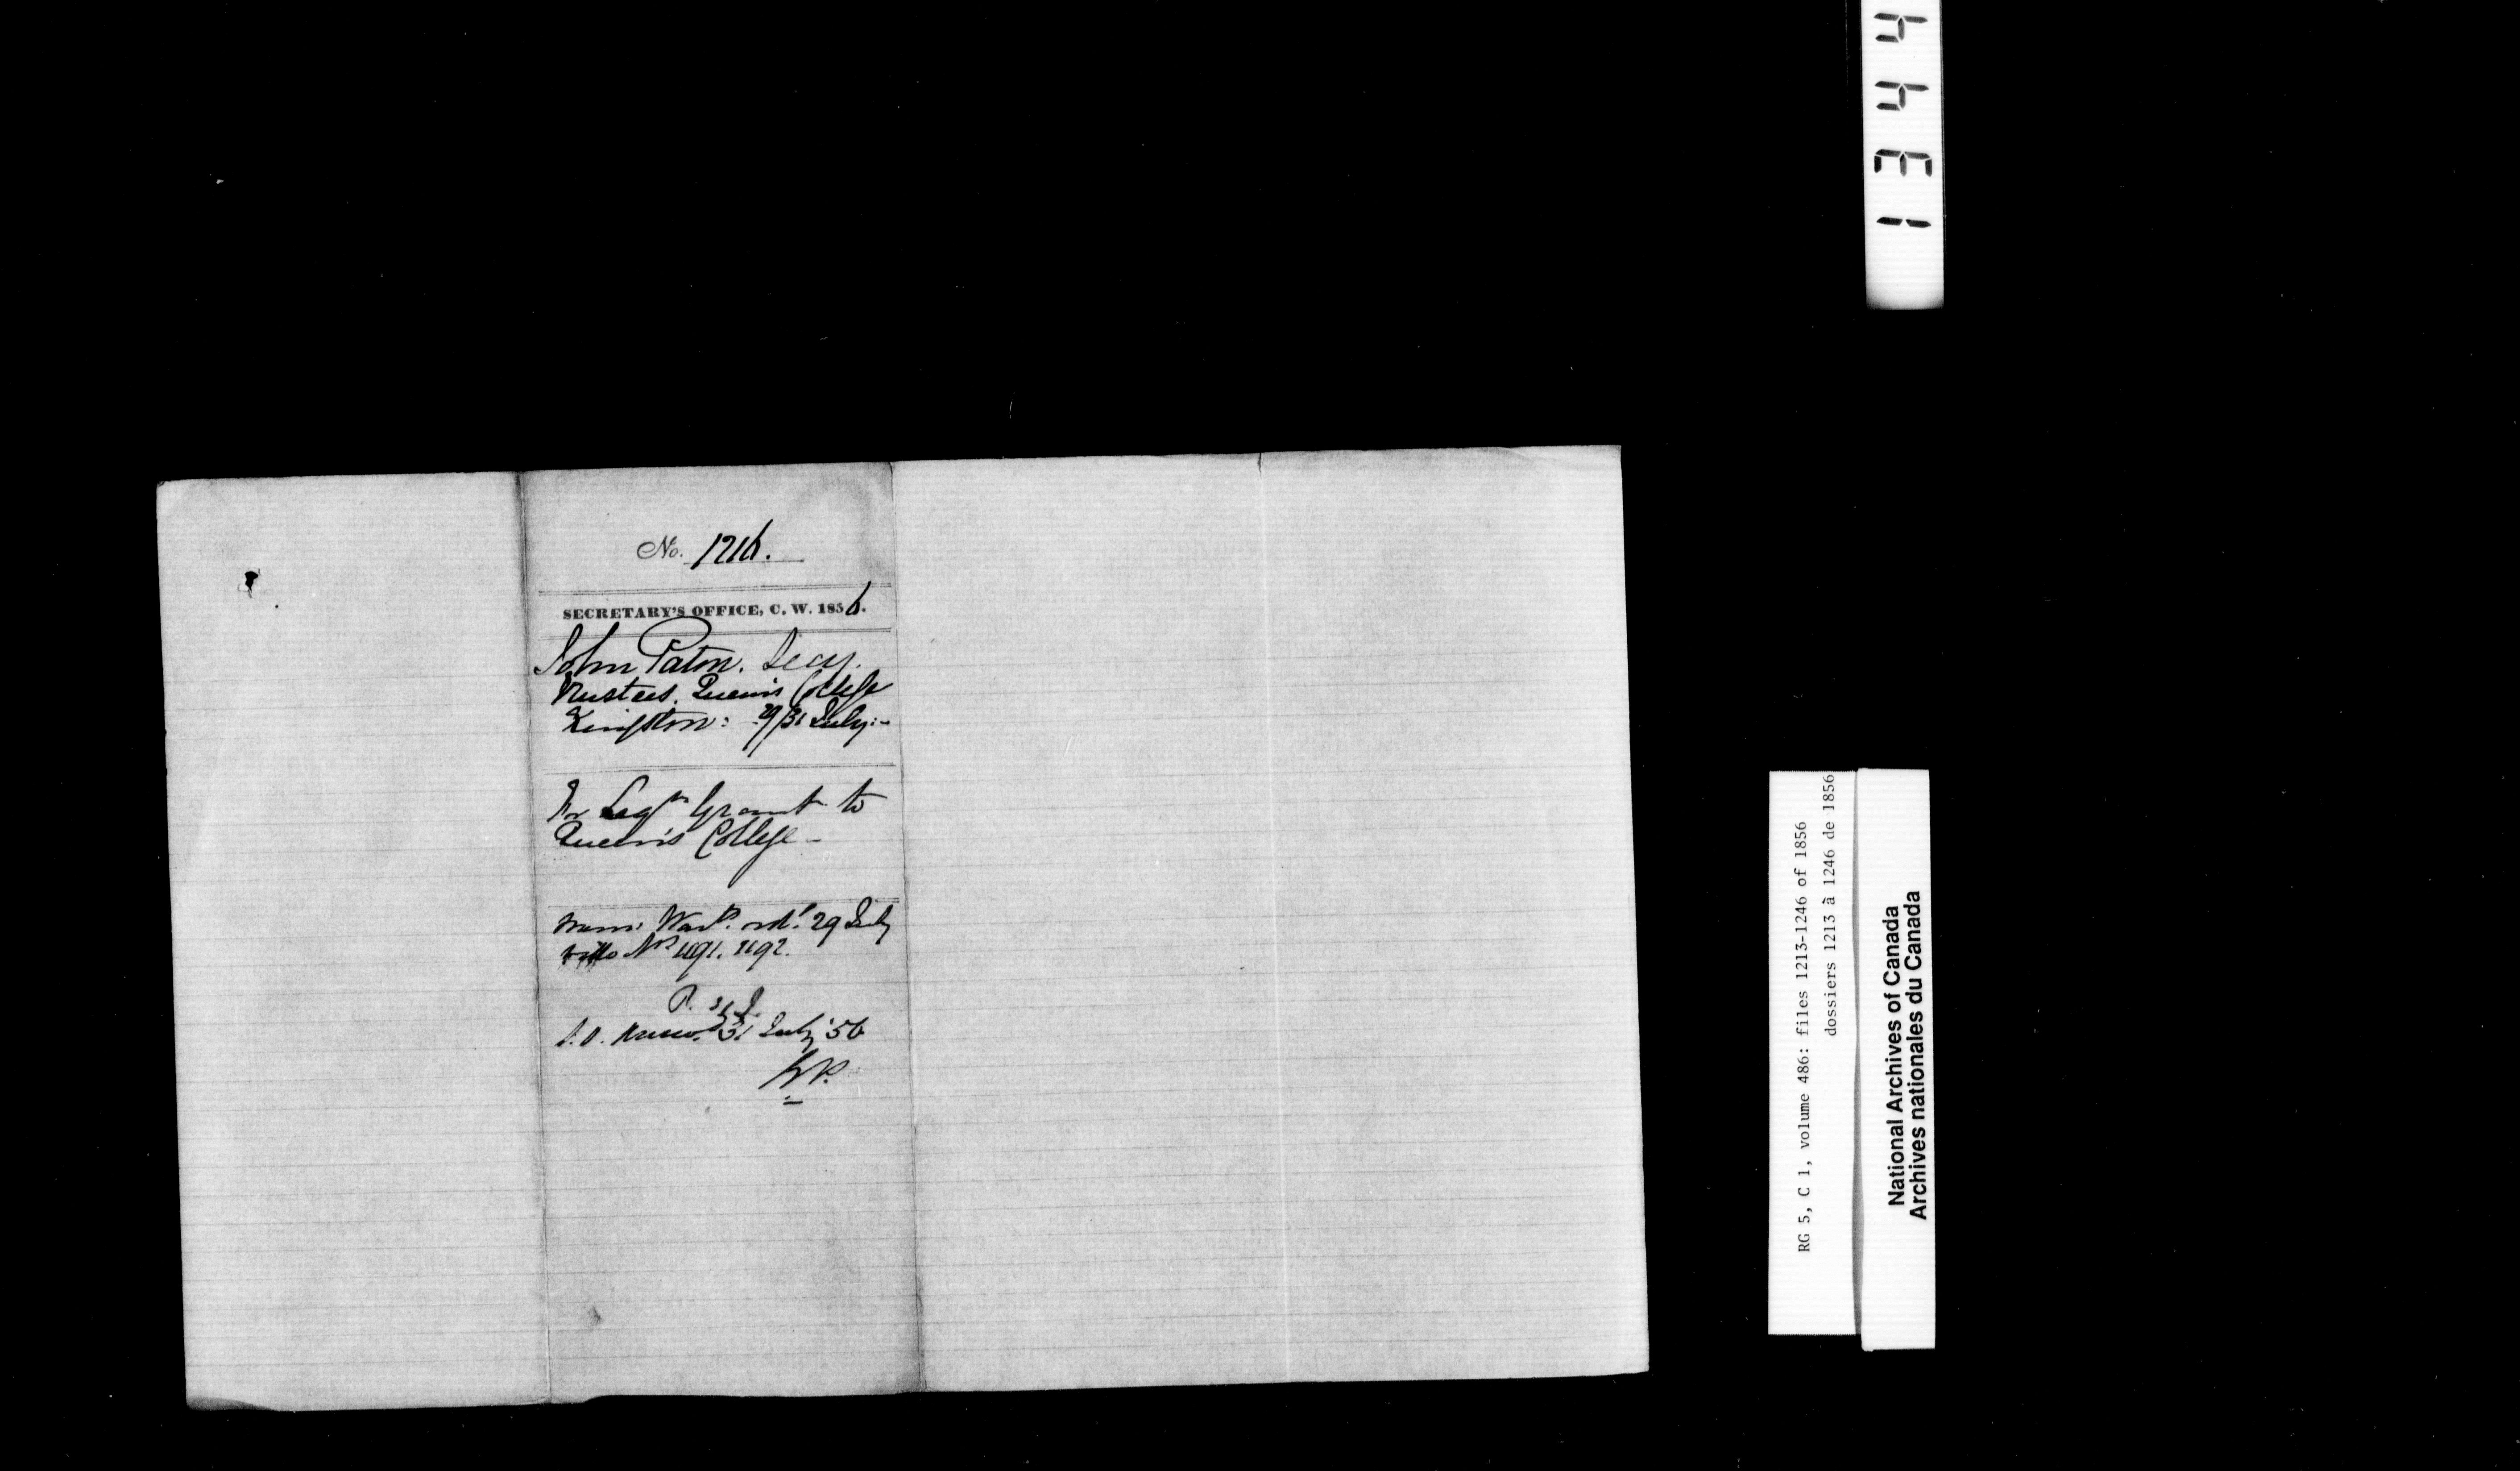 No. 1216.
SECRETARY'S OFFICE, C. W. 1856.
John Paton. Secy.
Trustees. Queen's College
Kingston: 29/31 July:-
For Legve Grant to
Queen's College -
Memo: Wart. 29 July
Nos 1191. 1192.
P. S. J.
31 July '56
1344
RG 5, C 1, volume 486: files 1213-1246 of 1856
dossiers 1213 à 1246 de 1856
National Archives of Canada
Archives nationales du Canada